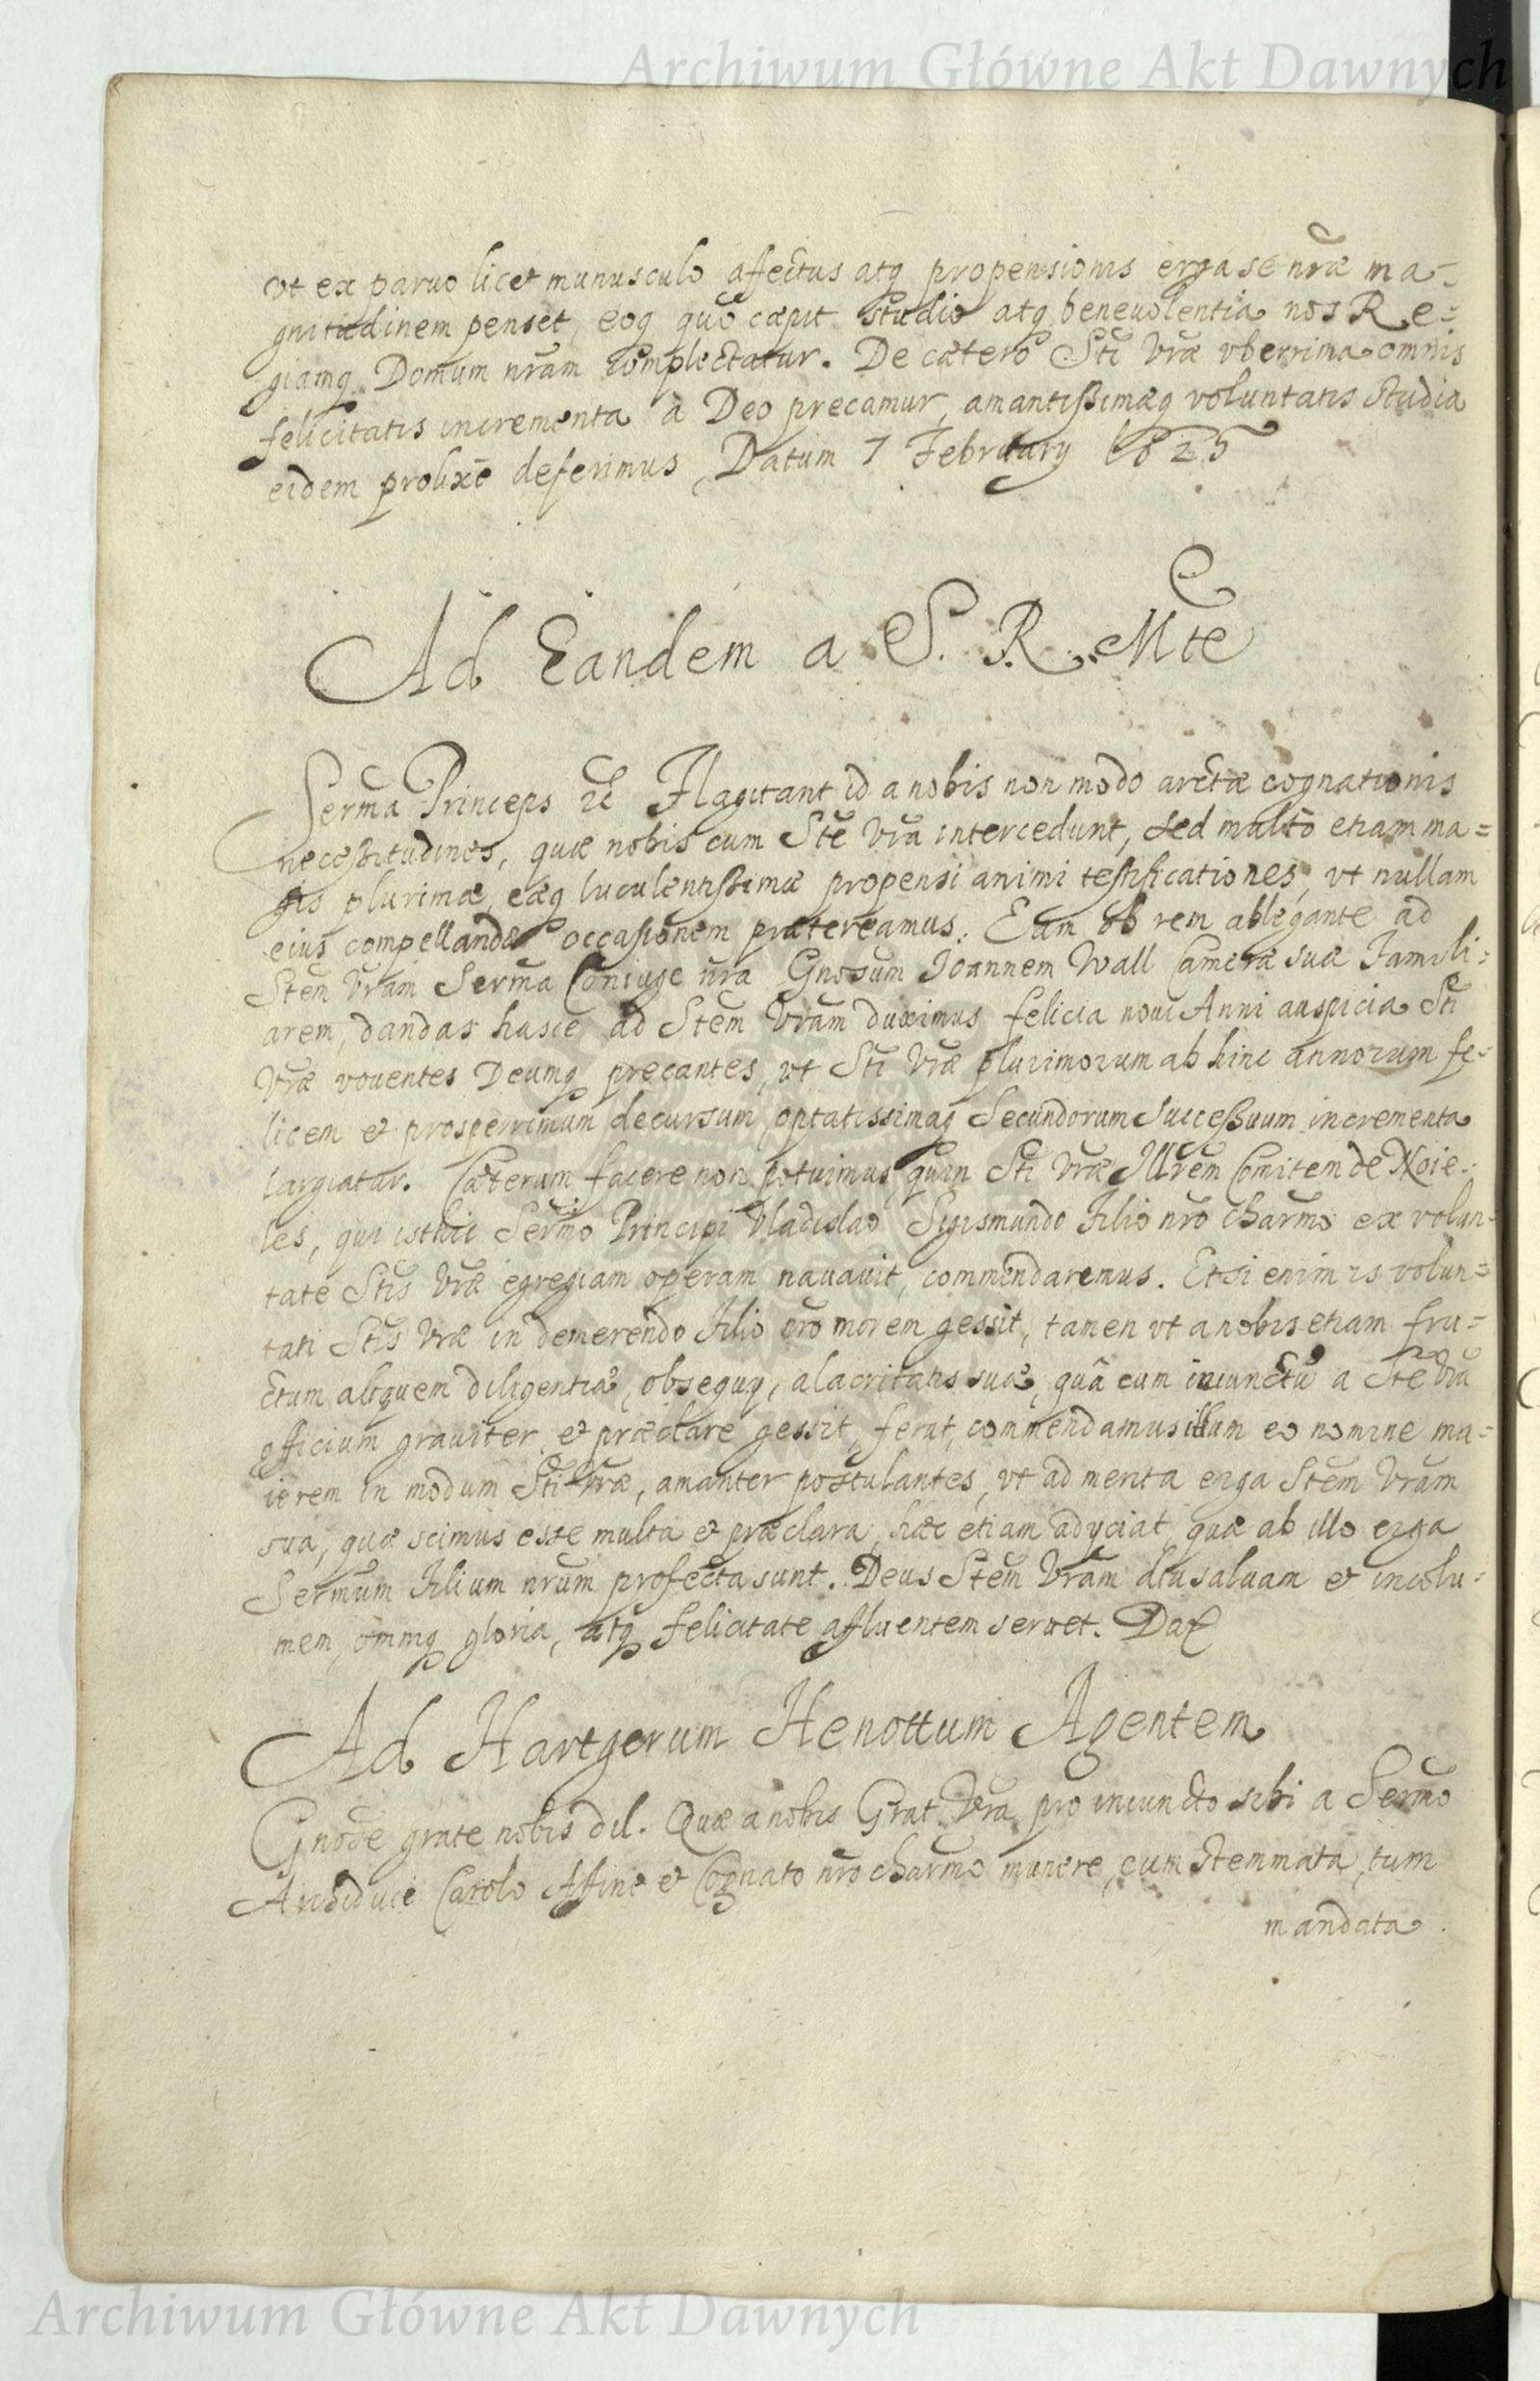 Archiwum Główne Akt Dawnych
vt ex paruo licet munusculo affectus atq propensionis erga se nræ ma-
gnitudinem penset, eoq quo cæpit studio atq beneuolentia nos Re-
giamq Domum nram complectatur. De cætero Sti Vræ vberrima omnis
felicitatis incrementa à Deo precamur, amantissimæq voluntatis studia
eidem prolixè deferimus, Datum 7 February 1625
Ad Eandem a S. R. Mte
Serma Princeps etc Flagitant id a nobis non modo arctæ cognationis
necessitudines, quæ nobis cum Ste Vra intercedunt, sed multò etiam ma=
gis plurimæ, eæq luculentissimæ propensi animi testificationes, vt nullam
eius compellandæ occasionem prætereamus. Eam ob rem ablegante ad
Stem Vram Serma Coniuge nra Gnosum Ioannem Wall Cameræ suæ Famili=
arem, dandas hasce ad Stem Vram duximus felicia noui Anni auspicia Sti
Vræ vouentes Deumq precantes, vt Sti Vræ plurimorum ab hinc annorum fe-
licem et prosperrimum decursum, optatissimaq Secundorum Successuum incrementa
largiatur. Cæterum facere non potuimus, quin Sti Vræ Illrem Comitem de Noie-
les, qui isthic Sermo Principi Vladislao Sigismundo Filio nro charmo ex volun-
tate Stis Vræ egregiam operam nauauit, commendaremus. Etsi enim is volun=
tati Stis Vræ in demerendo Filio nro morem gessit, tamen vt a nobis etiam fru=
ctum aliquem diligentiæ, obsequij, alacritatis suæ, quâ cum iniunctu a Ste Vra
officium grauiter et præclare gessit, ferat, commendamus illum eo nomine ma=
iorem in modum Sti Vræ, amanter postulantes, vt ad merita erga Stem Vram
sua, quæ scimus esse multa et præclara, hæc etiam adyciat, quæ ab illo erga
Sermum Filium nrum profecta sunt. Deus Stem Vram diu saluam et incolu-
mem, omniq gloria, atq felicitate affluentem seruet. Dat
Ad Hartgerum Henottum Agentem
Gnode grate nobis dil. Quæ a nobis Grat. Vra pro iniuncto sibi a Sermo
Archiduce Carolo Affine et Cognato nro charmo munere, cum stemmata, tum
mandata
Archiwum Główne Akt Dawnych